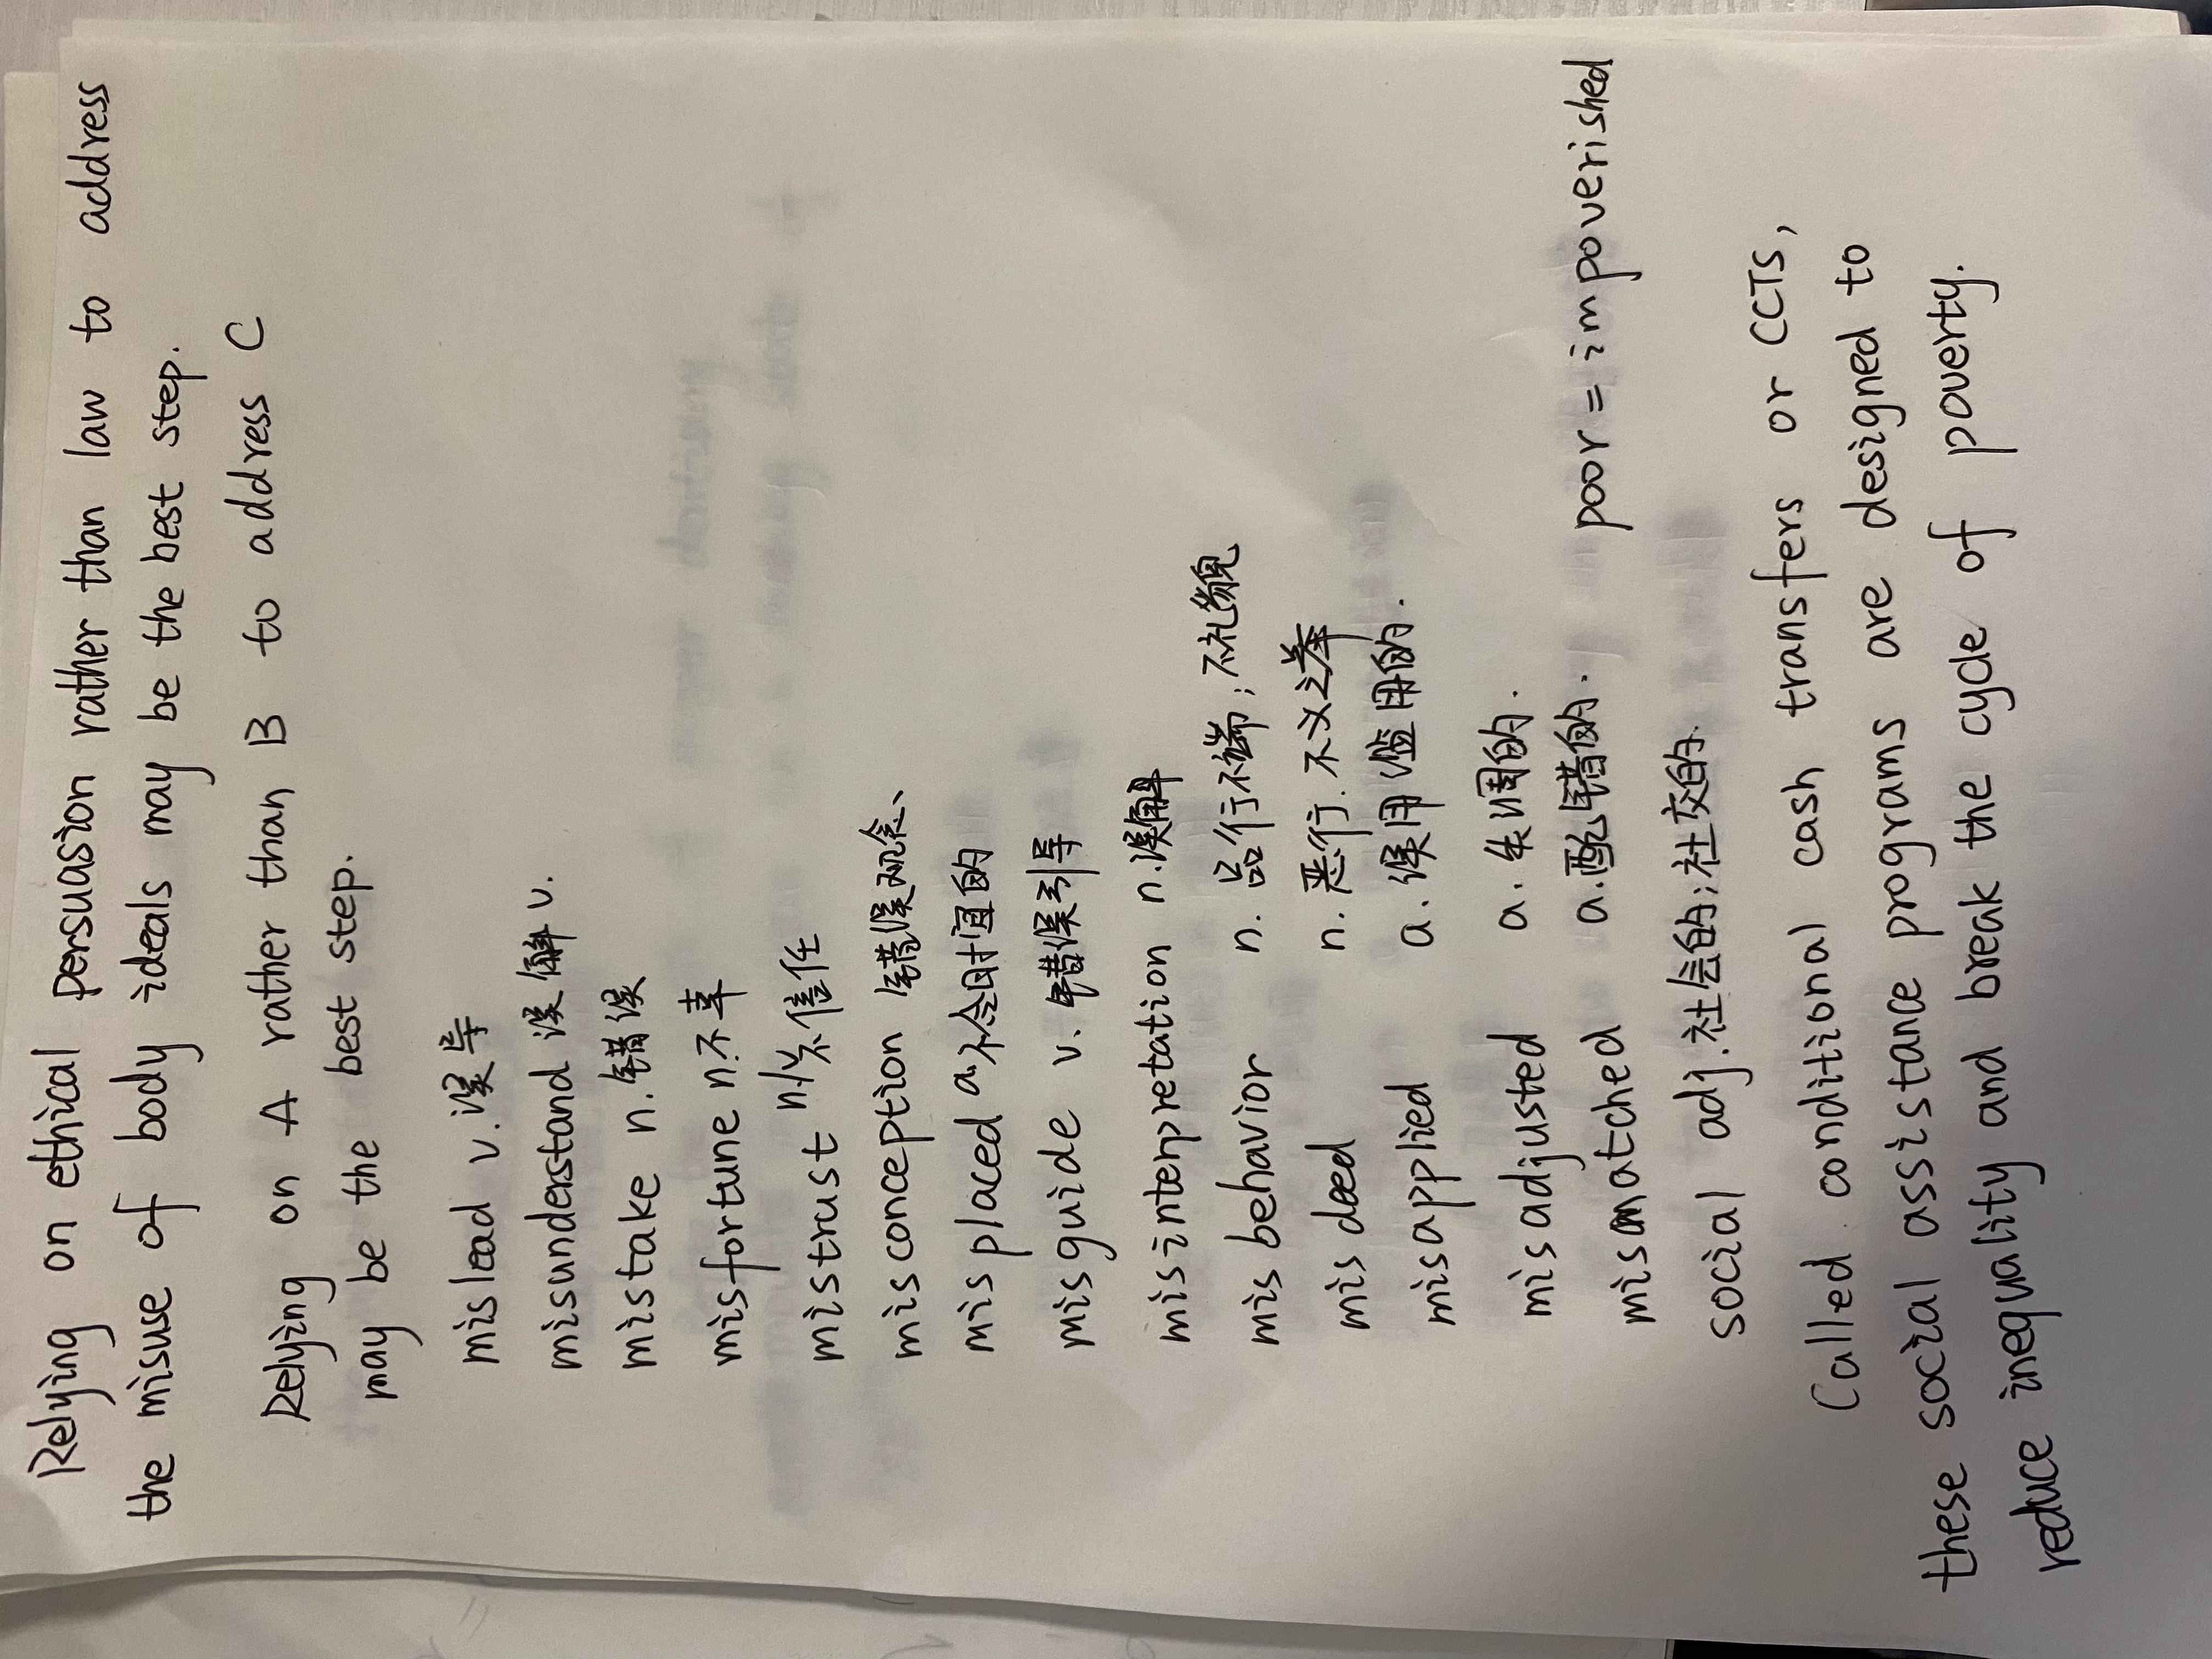 Relying on ethical persuasion rather than law to address
the misuse of body ideals may be the best step.
Relying on A rather than B to address C
may be the best step.
mislead v. 误导
misunderstand 误解 v.
mistake n. 错误
misfortune n. 不幸
mistrust n./v. 不信任
misconception 错误观念、
misplaced a. 不合时宜的
misguide v. 错误引导
misinterpretation n. 误解
misbehavior n. 品行不端；不礼貌
misdeed n. 恶行. 不义之举
misapplied a. 误用滥用的.
misadjusted a. 失调的.
mismatched a. 配错的. poor = impoverished
social adj. 社会的；社交的.
Called conditional cash transfers or CCTS,
these social assistance programs are designed to
reduce inequality and break the cycle of poverty.